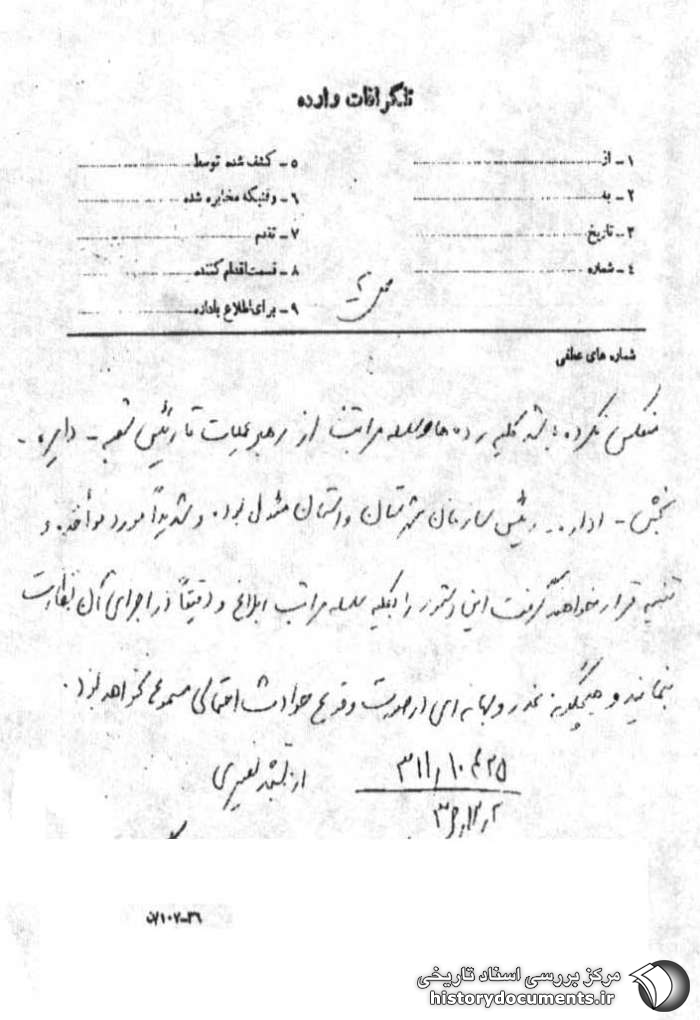 تلگرافات وارده
۱ـ از
۲ـ به
۳ـ تاریخ
۴ـ شماره
۵ـ کشف شده توسط
۶ـ وقتیکه مخابره شده
۷ـ تقدم
۸ـ قسمت اقدام کننده
۹ـ برای اطلاع باداره
شماره های عطفی
منعکس نکرده باشد کلیه رده‌ها و سلسله مراتب از رهبر عملیات تا رئیس شعبه ـ دایره ـ
بخش ـ اداره ـ رئیس سازمان شهرستان و استان مسئول بوده و شدیداً مورد مواخذه و
تنبیه قرار خواهند گرفت این دستور را بکلیه سلسله مراتب ابلاغ و دقیقاً در اجرای آن نظارت
بنمایند و هیچگونه عذر و بهانه ای در صورت وقوع حوادث احتمالی مسموع نخواهد بود.
ارتشبد نصیری
۳۱۱/
۲۶ـ۱۰۷/ن
مرکز بررسی اسناد تاریخی
historydocuments.ir